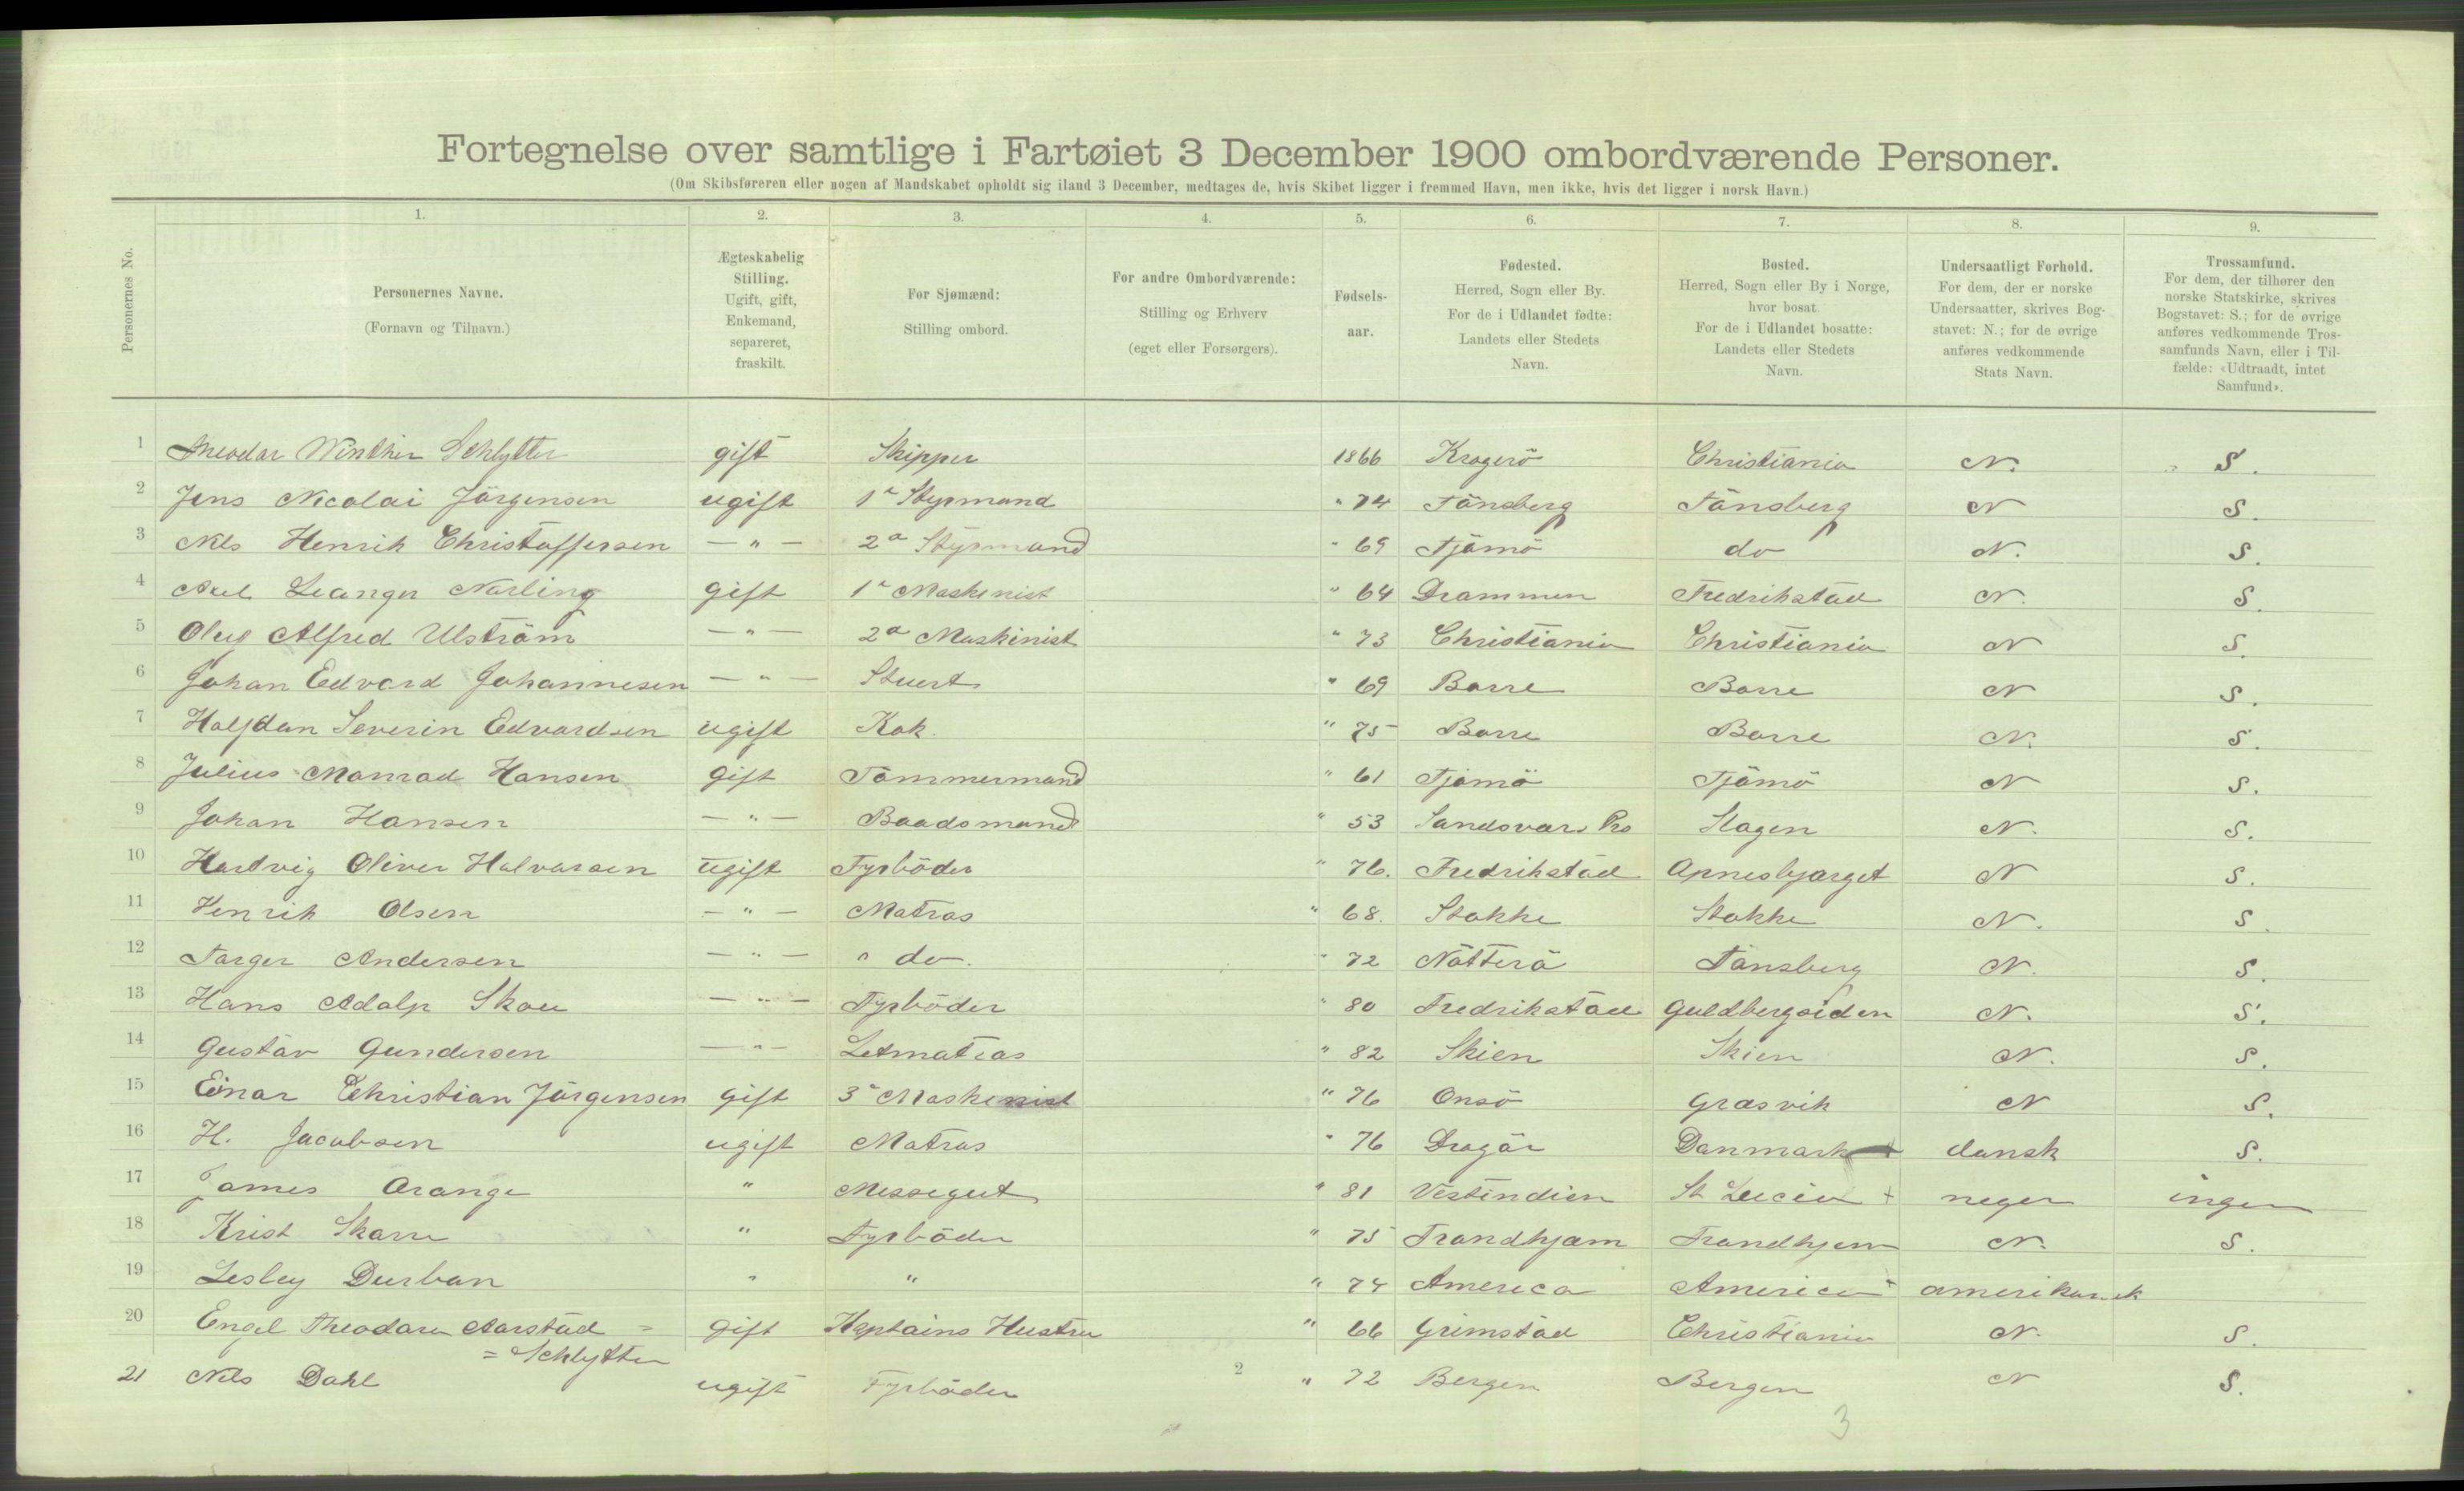 Fortegnelse over samtlige i Fartøiet 3 December 1900 ombordværende Personer.
(Om Skibsføreren eller nogen af Mandskabet opholdt sig iland 3 December, medtages de, hvis Skibet ligger i fremmed Havn, men ikke, hvis det ligger i norsk Havn.)
1. 2. 3. 4. 5. 6. 7. 8. 9.
Personernes No.
Personernes Navne.
(Fornavn og Tilnavn.)
Ægteskabelig
Stilling.
Ugift, gift,
Enkemand,
separeret,
fraskilt.
For Sjømænd:
Stilling ombord.
For andre Ombordværende:
Stilling og Erhverv
(eget eller Forsørgers).
Fødsels-
aar.
Fødested.
Herred, Sogn eller By.
For de i Udlandet fødte:
Landets eller Stedets
Navn.
Bosted.
Herred, Sogn eller By i Norge,
hvor bosat.
For de i Udlandet bosatte:
Landets eller Stedets
Navn.
Undersaatligt Forhold.
For dem, der er norske
Undersaatter, skrives Bog-
stavet: N.; for de øvrige
anføres vedkommende
Stats Navn.
Trossamfund.
For dem, der tilhører den
norske Statskirke, skrives
Bogstavet: S.; for de øvrige
anføres vedkommende Tros-
samfunds Navn, eller i Til-
fælde: «Udtraadt, intet
Samfund».
1 Theodor Winther Schlytter gift Skipper 1866 Kragerö Christiania N. S.
2 Jens Nicolai Jörgensen ugift 1e Styrmand " 74 Tönsberg Tönsberg N S.
3 Nils Henrik Christoffersen — " — 2a Styrmand " 69 Tjömö do N. S.
4 Leanger Norling gift 1e Maskinist " 64 Drammen Fredrikstad N. S.
5 Oluf Alfred Ulström — " — 2a Maskinist " 73 Christiania Christiania N S.
6 Johan Edvard Johannesen — " — Stuert " 69 Borre Borre N S.
7 Halfdan Severin Edvardsen ugift Kok. " 75 Borre Borre N. S.
8 Julius Monrad Hansen gift Tömmermand " 61 Tjömö Tjömö N S.
9 Johan Hansen — " — Baadsmand " 53 Slagen N. S.
10 Hartvig Oliver Halvorsen ugift Fyrböder " 76. Fredrikstad N S.
11 Henrik Olsen — " — Matros " 68. Stokke Stokke N. S.
12 Torger Andersen — " — " do. " 72 Nötterö Tönsberg N. S.
13 Hans Adolp Skou — " — Fyrböder " 80 Fredrikstad Guldbergsiden N. S.
14 Gustav Gundersen — " — Letmatros " 82 Skien Skien N. S.
15 Einar Christian Jörgensen gift 3e Maskinist " 76 Onsö Græsvik N S.
16 H. Jacobsen ugift Matros " 76 Dragör Danmark + dansk S.
17 James Orange " Messegut " 81 Vestindien St Lucia + neger ingen
18 Krist Skarre " Fyrböder " 75 Trondhjem Trondhjem N. S.
19 Lesley Durban " " " 74 America America + amerikansk
20 Engel Theodora Aarstad = gift Kaptains Hustru " 66 Grimstad Christiania N. S.
= Schlytter
21 Nils Dahl ugift Fyrböder 2 " 72 Bergen Bergen N S.
3